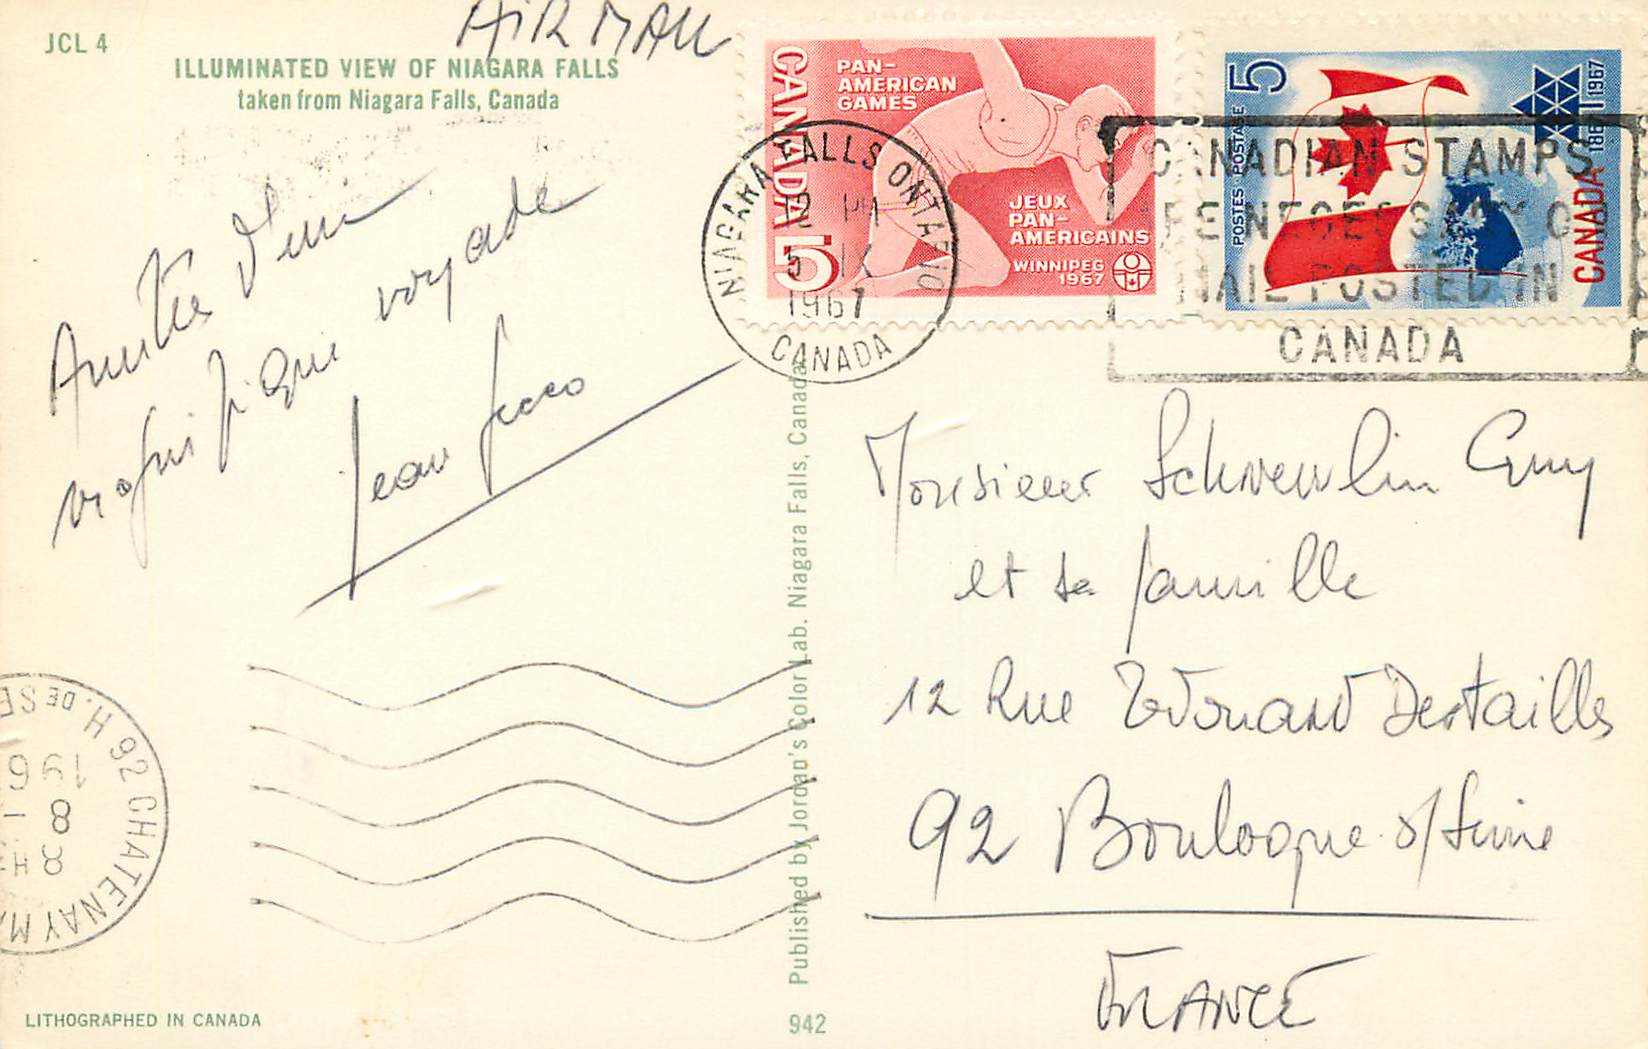 JCL 4
AIR MAIL
ILLUMINATED VIEW OF NIAGARA FALLS
taken from Niagara Falls, Canada
Amitiés d'un
magnifique voyage
Jean
CANADA 5
PAN-
AMERICAN
GAMES
JEUX
PAN-
AMERICAINS
WINNIPEG
1967
5
POSTES POSTAGE
1867 1967
CANADA
NIAGARA FALLS ONTARIO
PM
5 IX
1967
CANADA
CANADIAN STAMPS
ARE NECESSARY ON
MAIL POSTED IN
CANADA
Monsieur Schwewlin Guy
et sa famille
12 Rue Edouard Destailles
92 Boulogne s/Seine
FRANCE
92 CHATENAY M
H. DE SE
196
8
8H
Published by Jordan's Color Lab. Niagara Falls, Canada.
LITHOGRAPHED IN CANADA
942